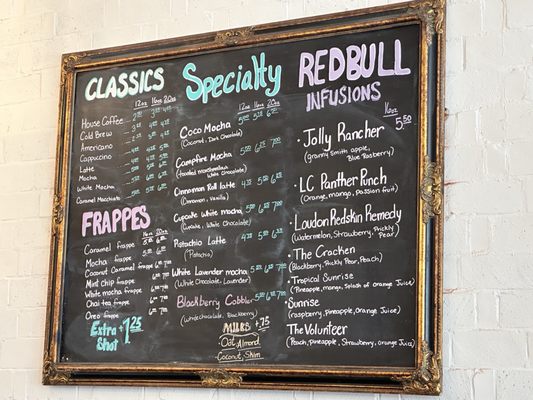 CLASSICS
12oz 16oz 20oz
House Coffee
Cold Brew
Americano
Cappuccino
Latte
Mocha
White Mocha
Caramel Macchiato
FRAPPES
16oz 20oz
Caramel frappe
Mocha frappe
Coconut Caramel frappe
Mint chip frappe
White mocha frappe
Chai tea frappe
Oreo frappe
Extra Shot +1.25
Specialty
12oz 16oz 20oz
Coco Mocha
(Coconut, Dark Chocolate)
Campfire Mocha
(toasted marshmallow, White Chocolate)
Cinnamon Roll latte
(Cinnamon, Vanilla)
Cupcake White mocha
(Cupcake, White Chocolate)
Pistachio Latte
(Pistachio)
White Lavender mocha
(White Chocolate, Lavender)
Blackberry Cobbler
(White chocolate, Blackberry)
MILKS +.75
Oat, Almond
Coconut, Skim
REDBULL
INFUSIONS
16oz
5.50
Jolly Rancher
(granny Smith apple, Blue Raspberry)
LC Panther Punch
(Orange, mango, passion fruit)
Loudon Redskin Remedy
(Watermelon, Strawberry, Prickly Pear)
The Cracken
(Blackberry, Prickly Pear, Peach)
Tropical Sunrise
(Pineapple, mango, Splash of Orange Juice)
Sunrise
(raspberry, pineapple, Orange Juice)
The Volunteer
(Peach, pineapple, Strawberry, Orange Juice)